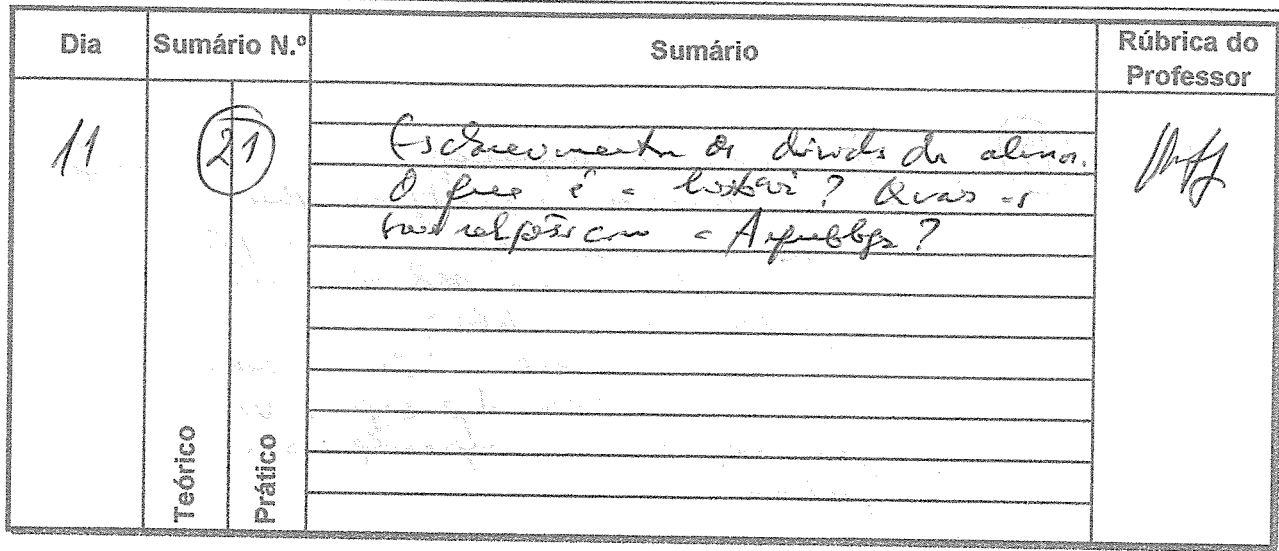 Dia
Sumário N.º
Sumário
Rúbrica do
Professor
11
21
Esclarecimento de dúvidas de alunos.
O que é a história? Quais as
suas relações com a
Teórico
Prático